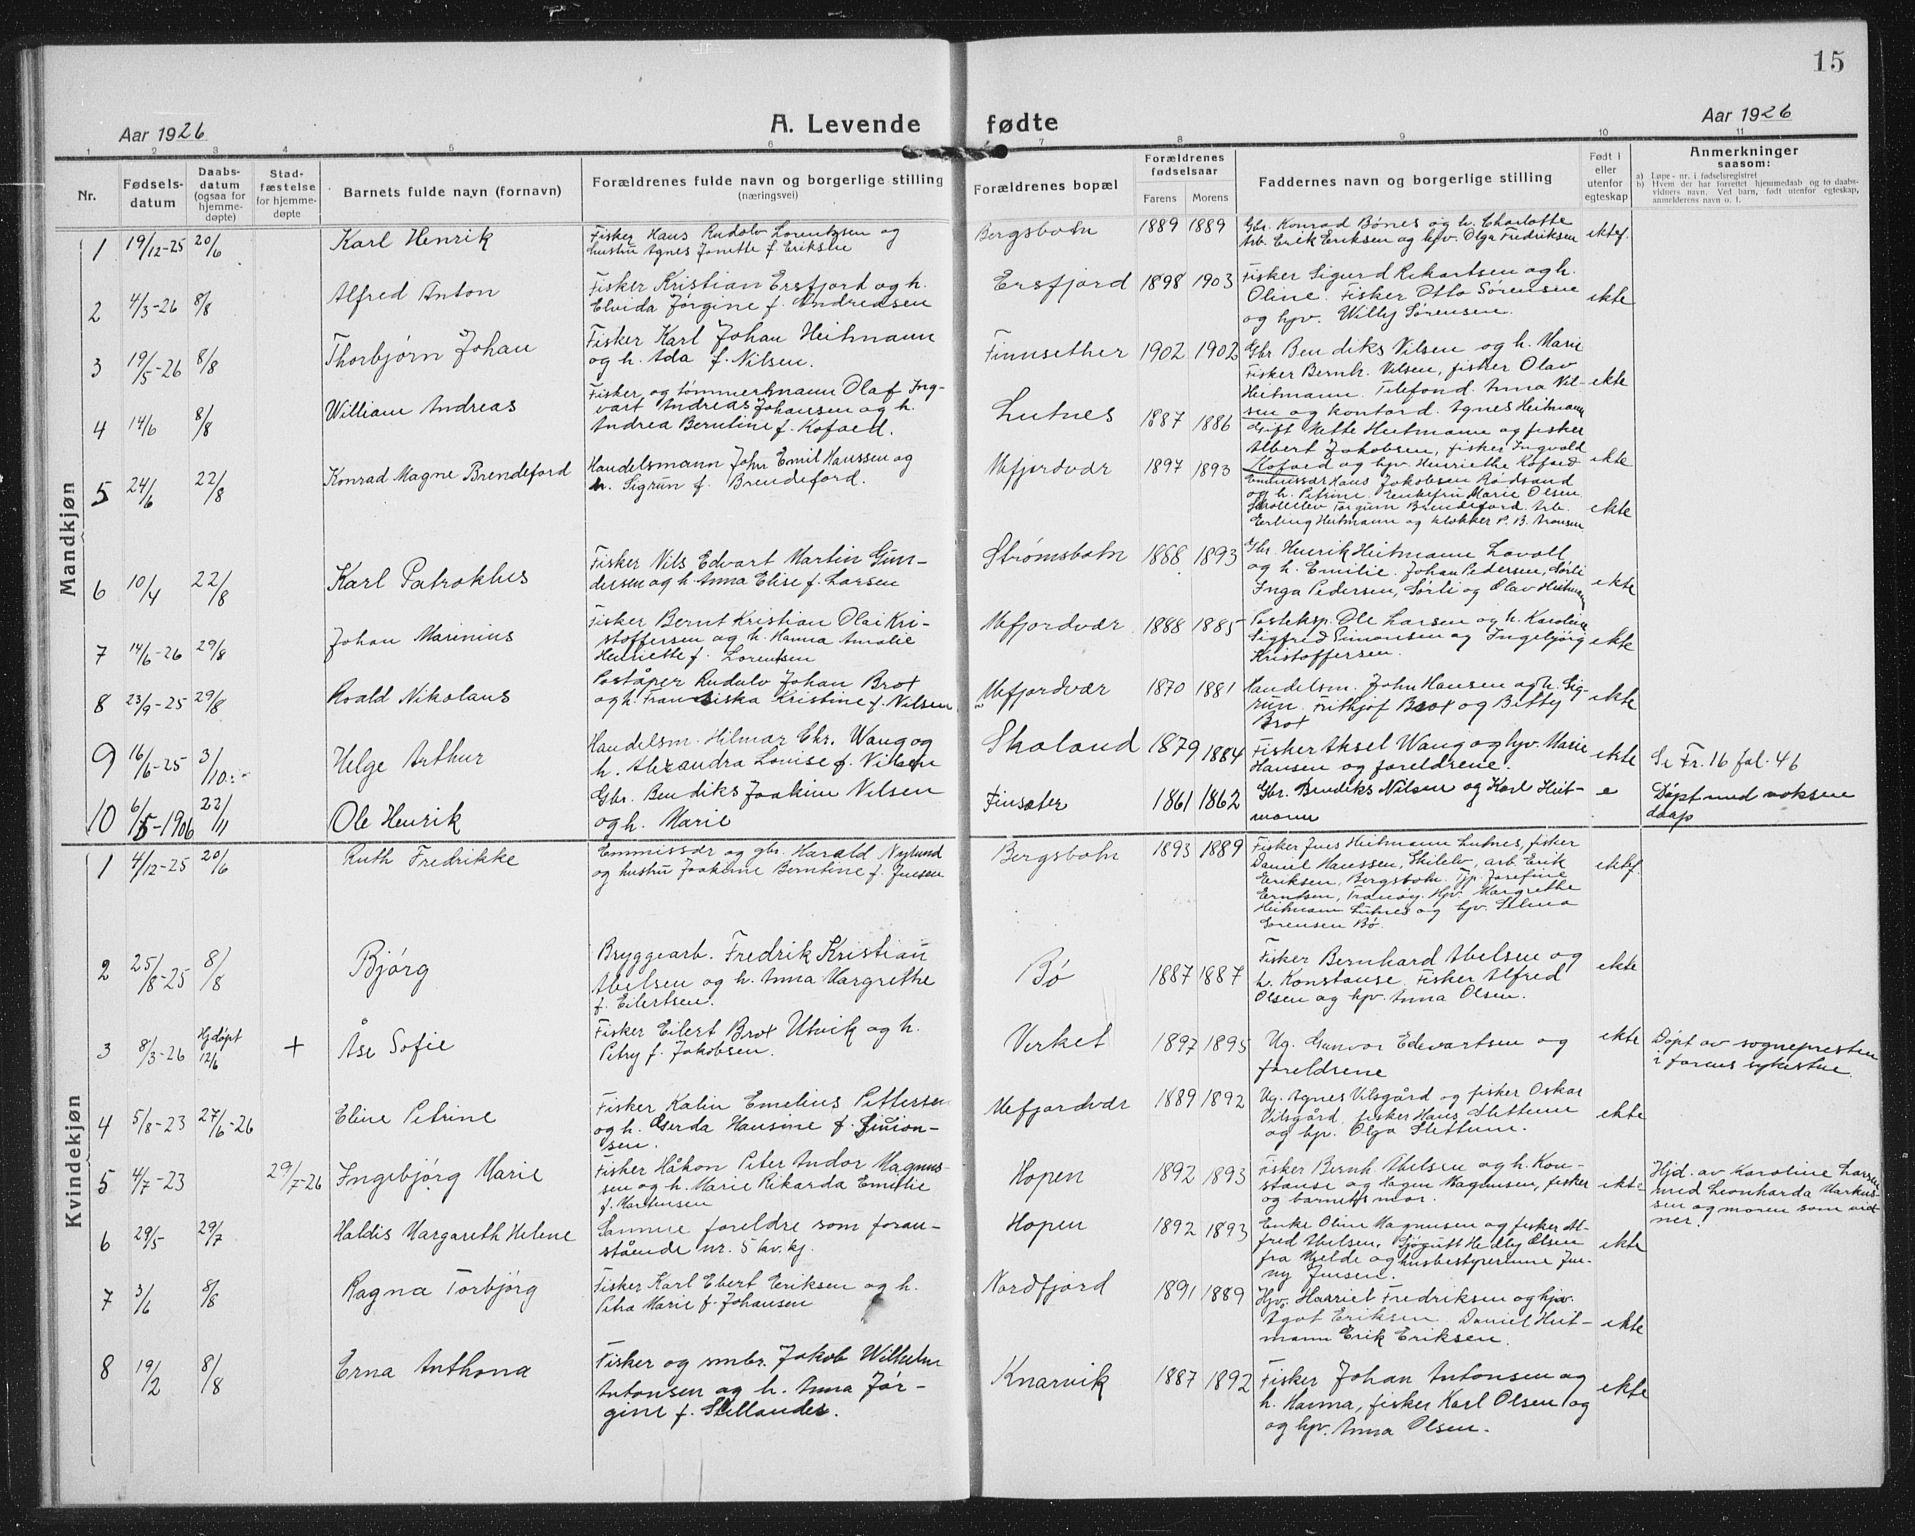 15
Aar 1926
A. Levende fødte
Aar 1926
1 2 3 4 5 6 7 8 9 10 11
Nr.
Fødsels-
datum
Daabs-
datum
(ogsaa for
hjemme-
døpte)
Stad-
fæstelse
for hjemme-
døpte
Barnets fulde navn (fornavn)
Forældrenes fulde navn og borgerlige stilling
(næringsvei)
Forældrenes bopæl
Forældrenes
fødselsaar
Farens Morens
Faddernes navn og borgerlige stilling
Født i
eller
utenfor
egteskap
Anmerkninger
saasom:
a) Løpe-nr. i fødselsregistret
b) Hvem der har forrettet hjemmedaab og to daabs-
vidners navn. Ved barn, født utenfor egteskap,
anmelderens navn o. l.
Mandkjøn
1 19/12-25 20/6 Karl Henrik
Fisker Hans Rudolv Lorentzen og
hustru Agnes Jonette f. Eriksen
Bergsbotn 1889 1889
Gbr. Konrad Bønes og h. Charlotte
Arb. Erik Eriksen og hpv. Olga Fredriksen
ektef.
2 4/3-26 8/8 Alfred Anton
Fisker Kristian Ersfjord og h.
Elvida Jørgine f. Andreasen
Ersfjord 1898 1903
Fisker Sigurd Rikartsen og h.
Oline. Fisker Otto Sørensen
og hpv. Willy Sørensen.
ekte
3 19/5-26 8/8 Thorbjørn Johan
Fisker Karl Johan Heitmann
og h. Ada f. Nilsen.
Finnsether 1902 1902
Gbr Bendiks Nilsen og h. Marie
Fisker Bernh. Nilsen, fisker Olav
Heitmann. Telefond. Anna Nil-
sen og kontord. Agnes Heitmann
ekte
4 14/6 8/8 William Andreas
Fisker og tømmermann Olaf Ing-
vart Andreas Johansen og h.
Andrea Berntine f. Kofoed.
Lutnes 1887 1886
Gift Mette Heitmann og fisker
Albert Jakobsen, fisker Ingvald
Kofoed og hpv Henriette Kofoed
ekte
5 24/6 22/8 Konrad Magne Brendeford
Handelsmann John Emil Hanssen og
h. Sigrun f. Brendeford.
Mefjordvær 1897 1893
Emmissær Hans Jakobsen Rødsand
og h. Petrine. Enkefru Marie Olsen
Skoleelev Torgun Brendeford. Arb.
Erling Heitmann og klokker P. B. Aronsen
ekte
6 10/4 22/8 Karl Patroklus
Fisker Nils Edvart Martin Gun-
dersen og h Anna Elise f. Larsen
Strømsbotn 1888 1893
Gbr. Henrik Heitmann Lavoll
og h. Emilie. Johan Pedersen, Sørli
Inga Pedersen, Sørli og Olav Heitmann
ekte
7 14/6-26 29/8 Johan Marinius
Fisker Bernt Kristian Olai Kri-
stoffersen og h. Hanna Amalie
Henriette f. Lorentsen
Mefjordvær 1888 1885
Posteksp. Ole Larsen og h. Karoline
Sigfred Simonsen og Ingebjørg
Kristoffersen.
ekte
8 23/9-25 29/8 Roald Nikolaus
Poståper Rudolv Johan Brox
og h. Fransiska Kristine f. Nilsen
Mefjordvær 1870 1881
Handelsm. John Hansen og h. Sig-
run. Frithjof Brox og Betty
Brox
ekte
9 16/6-25 3/10 Helge Arthur
Handelsm. Hilmar Chr. Wang og
h. Alexandra Louise f. Nilsen
Skaland 1879 1884
Fisker Aksel Wang og hpv. Marie
Hansen og foreldrene.
ekte
Se Fr. 16 fol. 46
10 6/5-1906 22/11 Ole Henrik
Gbr. Bendiks Joakim Nilsen
og h. Marie
Finsæter 1861 1862
Gbr. Bendiks Nilsen og Karl Heit-
mann
e
Døpt med voksen
daap
Kvindekjøn
1 4/12-25 20/6 Ruth Fredrikke
Emmissær og gbr. Harald Nylund
og hustru Joakime Berntine f. Jensen
Bergsbotn 1893 1889
Fisker Jens Heitmann Lutnes, fisker
Daniel Hanssen, Skilelv, arb. Erik
Eriksen, Bergsbotn. Tjp. Josefine
Erntsen, Tranøy. Hpv Margrethe
Heitmann Lutnes og hpv. Selma
Sørensen Bø.
ektef.
2 25/8-25 8/8 Bjørg
Bryggearb. Fredrik Kristian
Abelsen og h. Anna Margrethe
f. Eilertsen.
Bø 1887 1887
Fisker Bernhard Abelsen og
h. Konstanse. Fisker Alfred
Olsen og hpv. Anna Olsen.
ekte
3 8/3-26 Hjdøpt 12/6 + Åse Sofie
Fisker Eilert Brox Utvik og h.
Petry f. Jakobsen.
Verket 1897 1895
Ug. Gunvor Edvartsen og
foreldrene
ekte
Døpt av sognepresten
i farens sykestue.
4 5/8-23 27/6-26 Eline Petrine
Fisker Kalin Emelius Pettersen
og h. Gerda Hansine f. Simon-
sen.
Mefjordvær 1889 1892
Ug. Agnes Vilsgård og fisker Oskar
Vilsgård, fisker Hans Slettum
og hpv. Olga Slettum.
ekte
5 4/7-23 29/7-26 Ingebjørg Marie
Fisker Håkon Peter Andor Magnus-
sen og h. Marie Rikarda Emilie
f. Martinsen
Hopen 1892 1893
Fisker Bernh. Abelsen og h. Kon-
stanse og Hagen Magnusen, fisker
og barnets mor.
ekte
Hjd. av Karoline Larsen
med Leonharda Markus-
sen og moren som vid-
ner!
6 29/5 29/7 Haldis Margareth Helene
Samme foreldre som foran-
stående nr. 5 kv.kj.
Hopen 1892 1893
Enke Oline Magnusen og fisker Al-
fred Abelsen. Sjøgutt Hedley Olsen
fra Mjelde og husbestyrerinne Jen-
ny Jensen.
ekte
7 3/6 8/8 Ragna Torbjørg
Fisker Karl Ebert Eriksen og h.
Petra Marie f. Johansen
Nordfjord 1891 1889
Hpv. Harriet Fredriksen og hpv.
Agot Eriksen. Daniel Heit-
mann Erik Eriksen.
ekte
8 19/2 8/8 Erna Anthona
Fisker og smbr. Jakob Wilhelm
Antonsen og h. Anna Jør-
gine f. Stellander.
Knarvik 1887 1892
Fisker Johan Antonsen og
h. Hanna, fisker Karl Olsen og
og hpv. Anna Olsen.
ekte